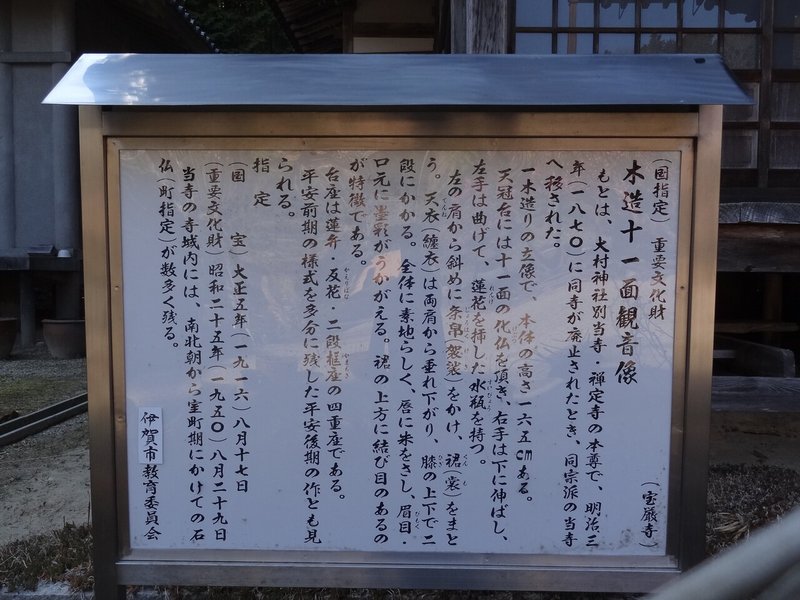 (国指定) 重要文化財
木造十一面観音像
(宝厳寺)
もとは、大村神社別当寺・禅定寺の本尊で、明治三
年(一八七〇)に同寺が廃止されたとき、同宗派の当寺
へ移された。
一木造りの立像で、本体の高さ一六五cmある。
天冠台には十一面の化仏を頂き、右手は下に伸ばし、
左手は曲げて、蓮花を挿した水瓶を持つ。
左の肩から斜めに条帛(袈裟)をかけ、裙(裳)をまと
う。天衣(纏衣)は両肩から垂れ下がり、膝の上下で二
段にかかる。全体に素地らしく、唇に朱をさし、眉目・
口元に墨彩がうかがえる。裙の上方に結び目のあるの
が特徴である。
台座は蓮弁・反花・二段框座の四重座である。
平安前期の様式を多分に残した平安後期の作とも見
られる。
指定
(国宝)大正五年(一九一六)八月十七日
(重要文化財)昭和二十五年(一九五〇)八月二十九日
当寺の寺域内には、南北朝から室町期にかけての石
仏(町指定)が数多く残る。
伊賀市教育委員会